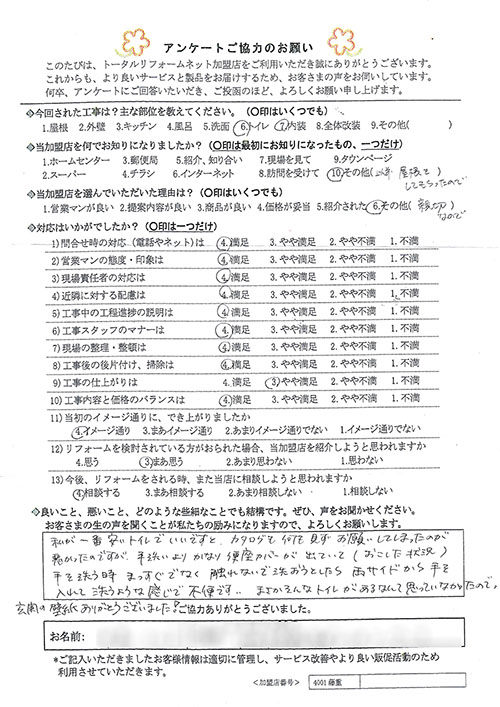 アンケートご協力のお願い
このたびは、トータルリフォームネット加盟店をご利用いただき誠にありがとうございます。
これからも、より良いサービスと製品をお届けするため、お客さまの声をお伺いしています。
何卒、アンケートにご回答いただき、ご投函のほど、よろしくお願い申し上げます。
◇今回された工事は?主な部位を教えてください。(〇印はいくつでも)
1.屋根 2.外壁 3.キッチン 4.風呂 5.洗面 6.トイレ 7.内装 8.全体改装 9.その他( )
◇当加盟店を何でお知りになりましたか?(〇印は最初にお知りになったもの、一つだけ)
1.ホームセンター 3.郵便局 5.紹介、知り合い 7.現場を見て 9.タウンページ
2.スーパー 4.チラシ 6.インターネット 8.訪問を受けて 10.その他(以前 屋根を
してもらったので)
◇当加盟店を選んでいただいた理由は?(〇印はいくつでも)
1.営業マンが良い 2.提案内容が良い 3.商品が良い 4.価格が妥当 5.紹介された 6.その他(親切
なので)
◇対応はいかがでしたか?(〇印は一つだけ)
1)問合せ時の対応(電話やネット)は 4.満足 3.やや満足 2.やや不満 1.不満
2)営業マンの態度・印象は 4.満足 3.やや満足 2.やや不満 1.不満
3)現場責任者の対応は 4.満足 3.やや満足 2.やや不満 1.不満
4)近隣に対する配慮は 4.満足 3.やや満足 2.やや不満 1.不満
5)工事中の工程進捗の説明は 4.満足 3.やや満足 2.やや不満 1.不満
6)工事スタッフのマナーは 4.満足 3.やや満足 2.やや不満 1.不満
7)現場の整理・整頓は 4.満足 3.やや満足 2.やや不満 1.不満
8)工事後の後片付け、掃除は 4.満足 3.やや満足 2.やや不満 1.不満
9)工事の仕上がりは 4.満足 3.やや満足 2.やや不満 1.不満
10)工事内容と価格のバランスは 4.満足 3.やや満足 2.やや不満 1.不満
11)当初のイメージ通りに、でき上がりましたか
4.イメージ通り 3.まあイメージ通り 2.あまりイメージ通りでない 1.イメージ通りでない
12)リフォームを検討されている方がおられた場合、当加盟店を紹介しようと思われますか
4.思う 3.まあ思う 2.あまり思わない 1.思わない
13)今後、リフォームをされる時、また当店に相談しようと思われますか
4.相談する 3.まあ相談する 2.あまり相談しない 1.相談しない
◇良いこと、悪いこと、どのような些細なことでも結構です。ぜひ、声をお聞かせください。
お客さまの生の声を聞くことが私たちの励みになりますので、よろしくお願いします。
私が一番安いトイレでいいですと、カタログも何も見ずお願いしてしまったのが
悪かったのですが、手洗いよりかなり便座カバーが出ていて(おこした状況)
手を洗う時 まっすぐでなく 触れないで洗おうとしたら 両サイドから手を
入れて洗うような感じで不便です.. まさかそんなトイレがあるなんて思っていなかったので。
玄関の壁紙ありがとうございました。ご協力ありがとうございました。
お名前:
*ご記入いただきましたお客様情報は適切に管理し、サービス改善やより良い販促活動のため
利用させていただきます。
<加盟店番号> 4001 藤重